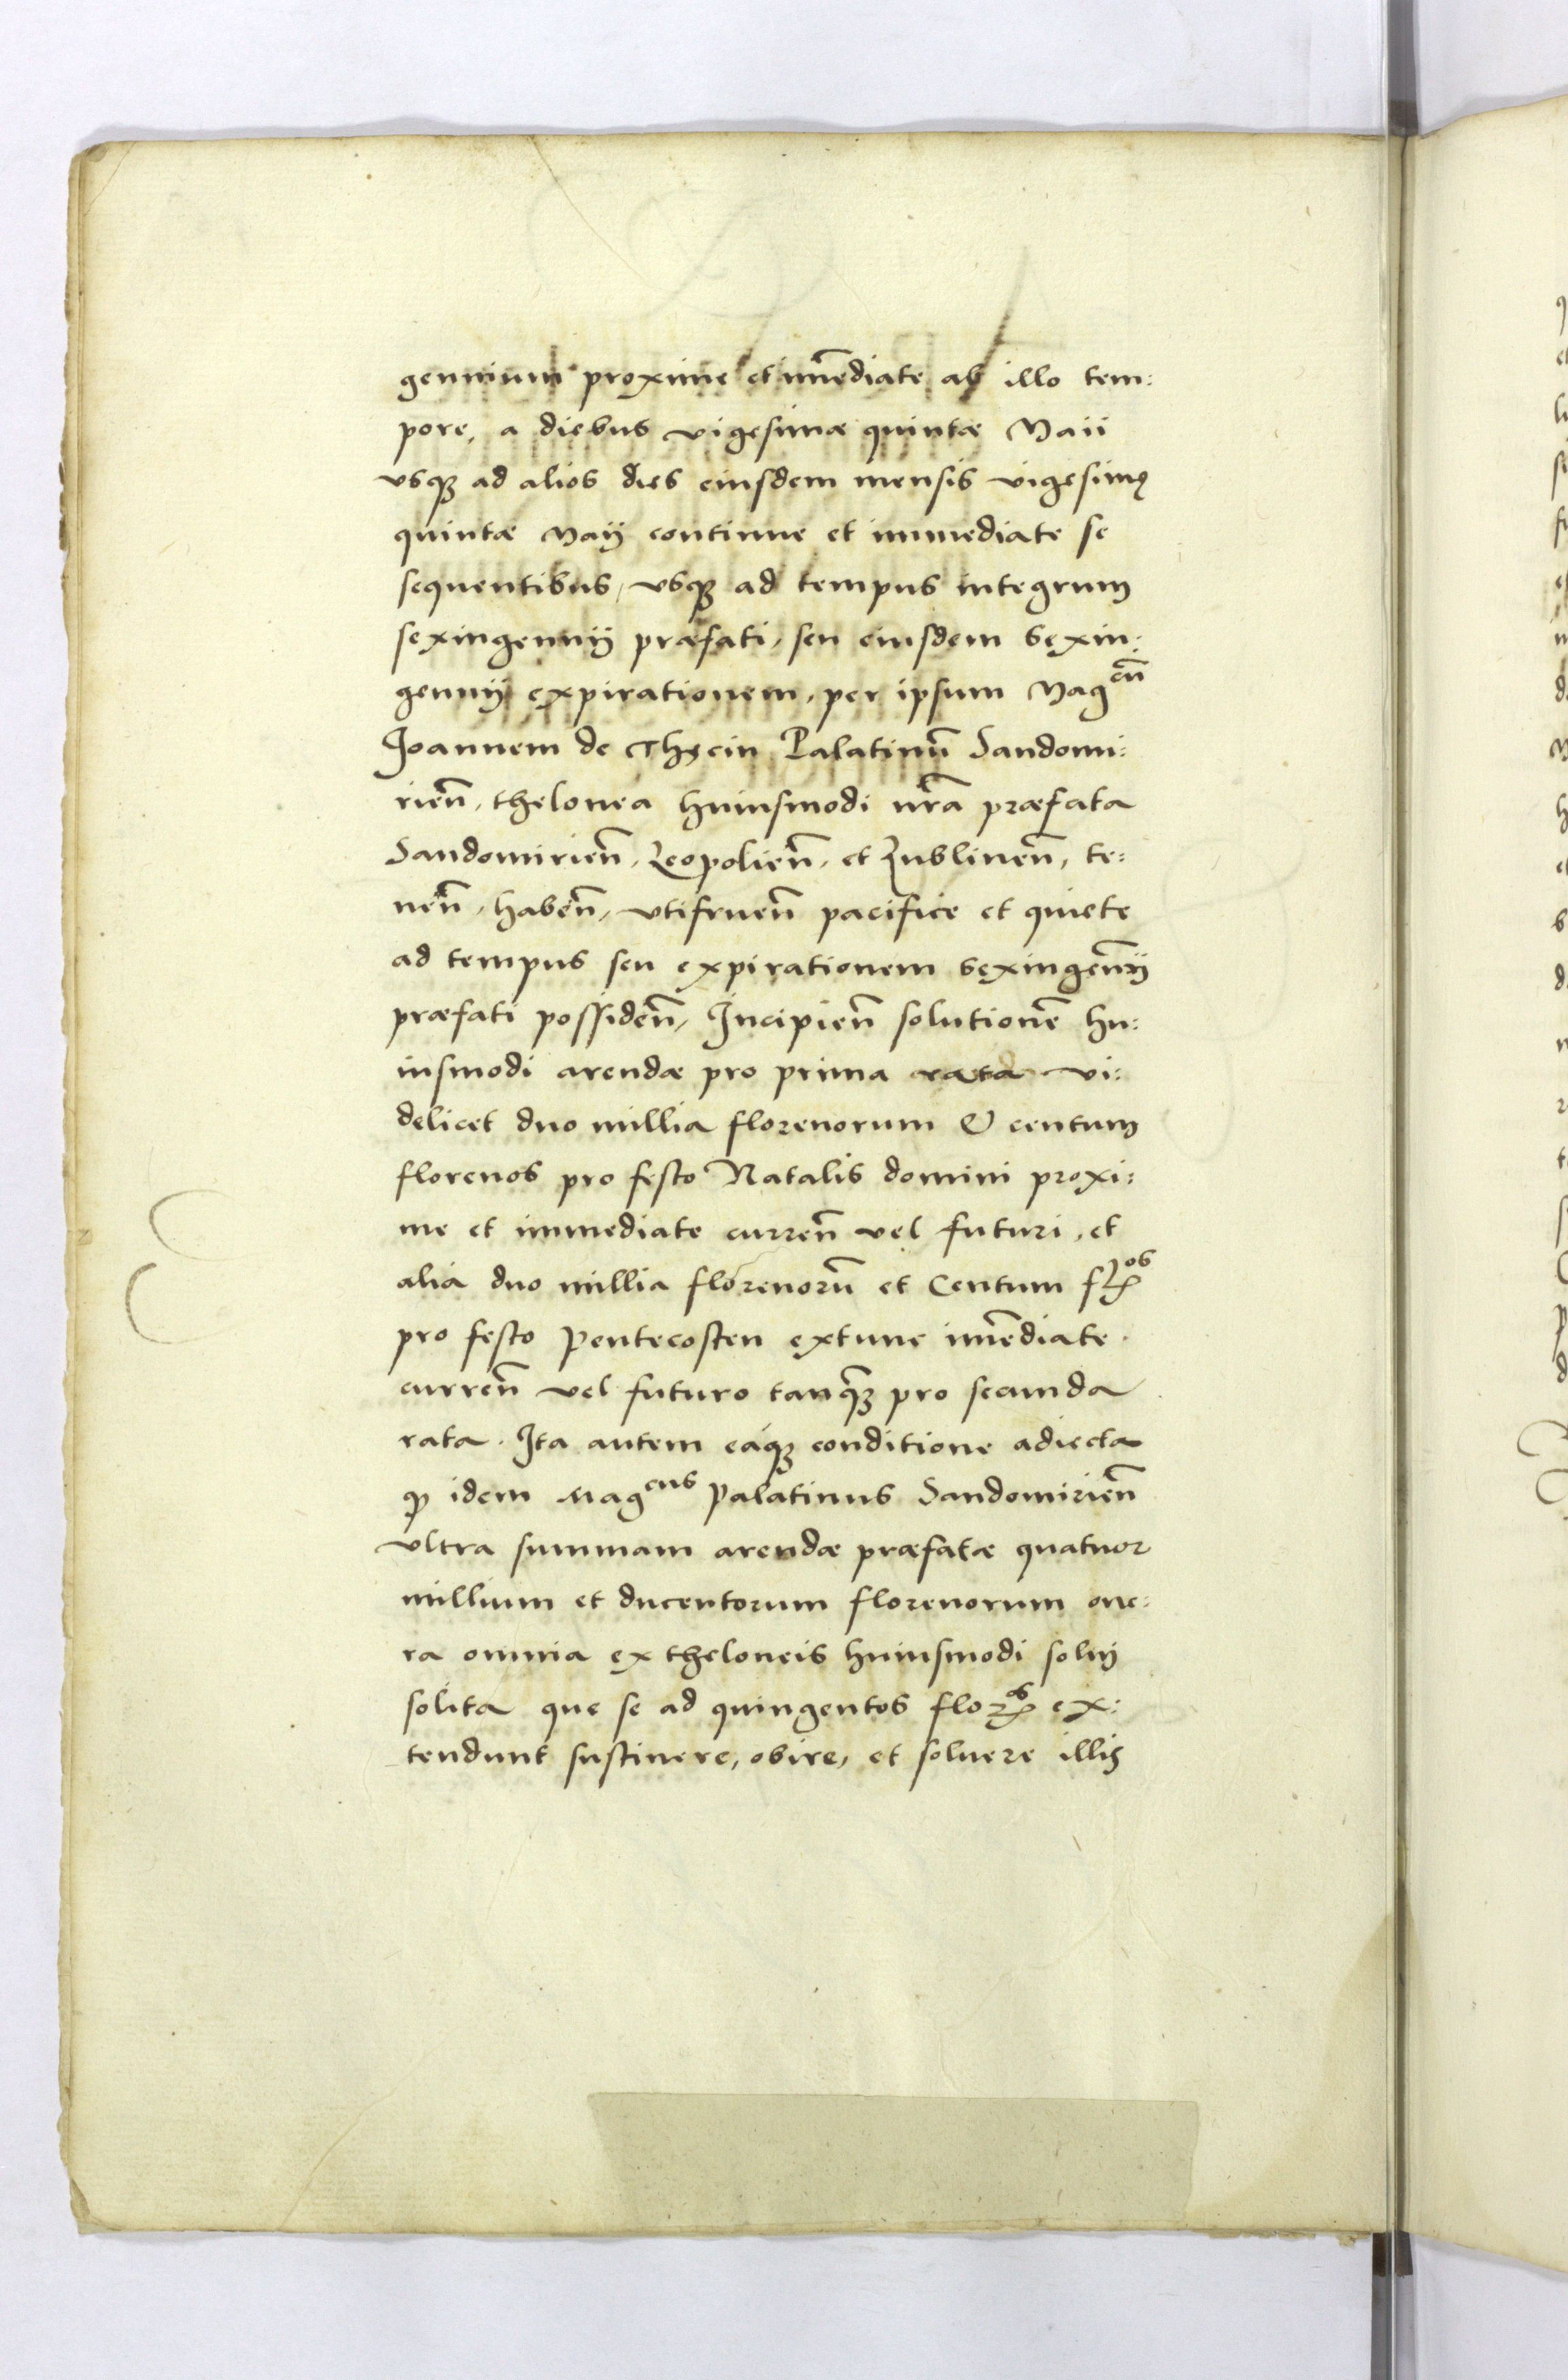 gennium proxime et imēdiate ab illo tem:
pore, a diebus vigesimæ quintæ Maii
vsq₃ ad alios dies eiusdem mensis vigesimę
quintæ Maij continue et immediate se
sequentibus, vsq₃ ad tempus integrum
sexingennij præfati, seu eiusdem sexin:
gennij expirationem, per ipsum Mag^cū
Joannem de Thęcin Palatinū Sandomi:
rieñ, thelonea huiusmodi nr̃a præfata
Sandomirieñ, Leopolieñ, et Lublineñ, te:
neñ, habeñ, vtifrueñ pacifice et quiete
ad tempus seu expirationem sexingen̄ij
præfati possideñ, Incipieñ solutionē hu:
iusmodi arendæ pro prima rata vi:
delicet duo millia florenorum & centum
florenos pro festo Natalis domini proxi:
me et immediate curreñ vel futuri, et
alia duo millia florenorū et Centum flꝝ^os
pro festo Pentecosten extunc imēdiate
curreñ vel futuro tanq̃₃ pro secunda
rata. Ita autem eaq₃ conditione adiecta
ꝙ idem Mag^cus Palatinus Sandomirieñ
vltra summam arendæ præfatæ quatuor
millium et ducentorum florenorum one:
ra omnia ex theloneis huiusmodi solui
solita que se ad quingentos floꝝ^os ex:
tendunt sustinere, obire, et soluere illis